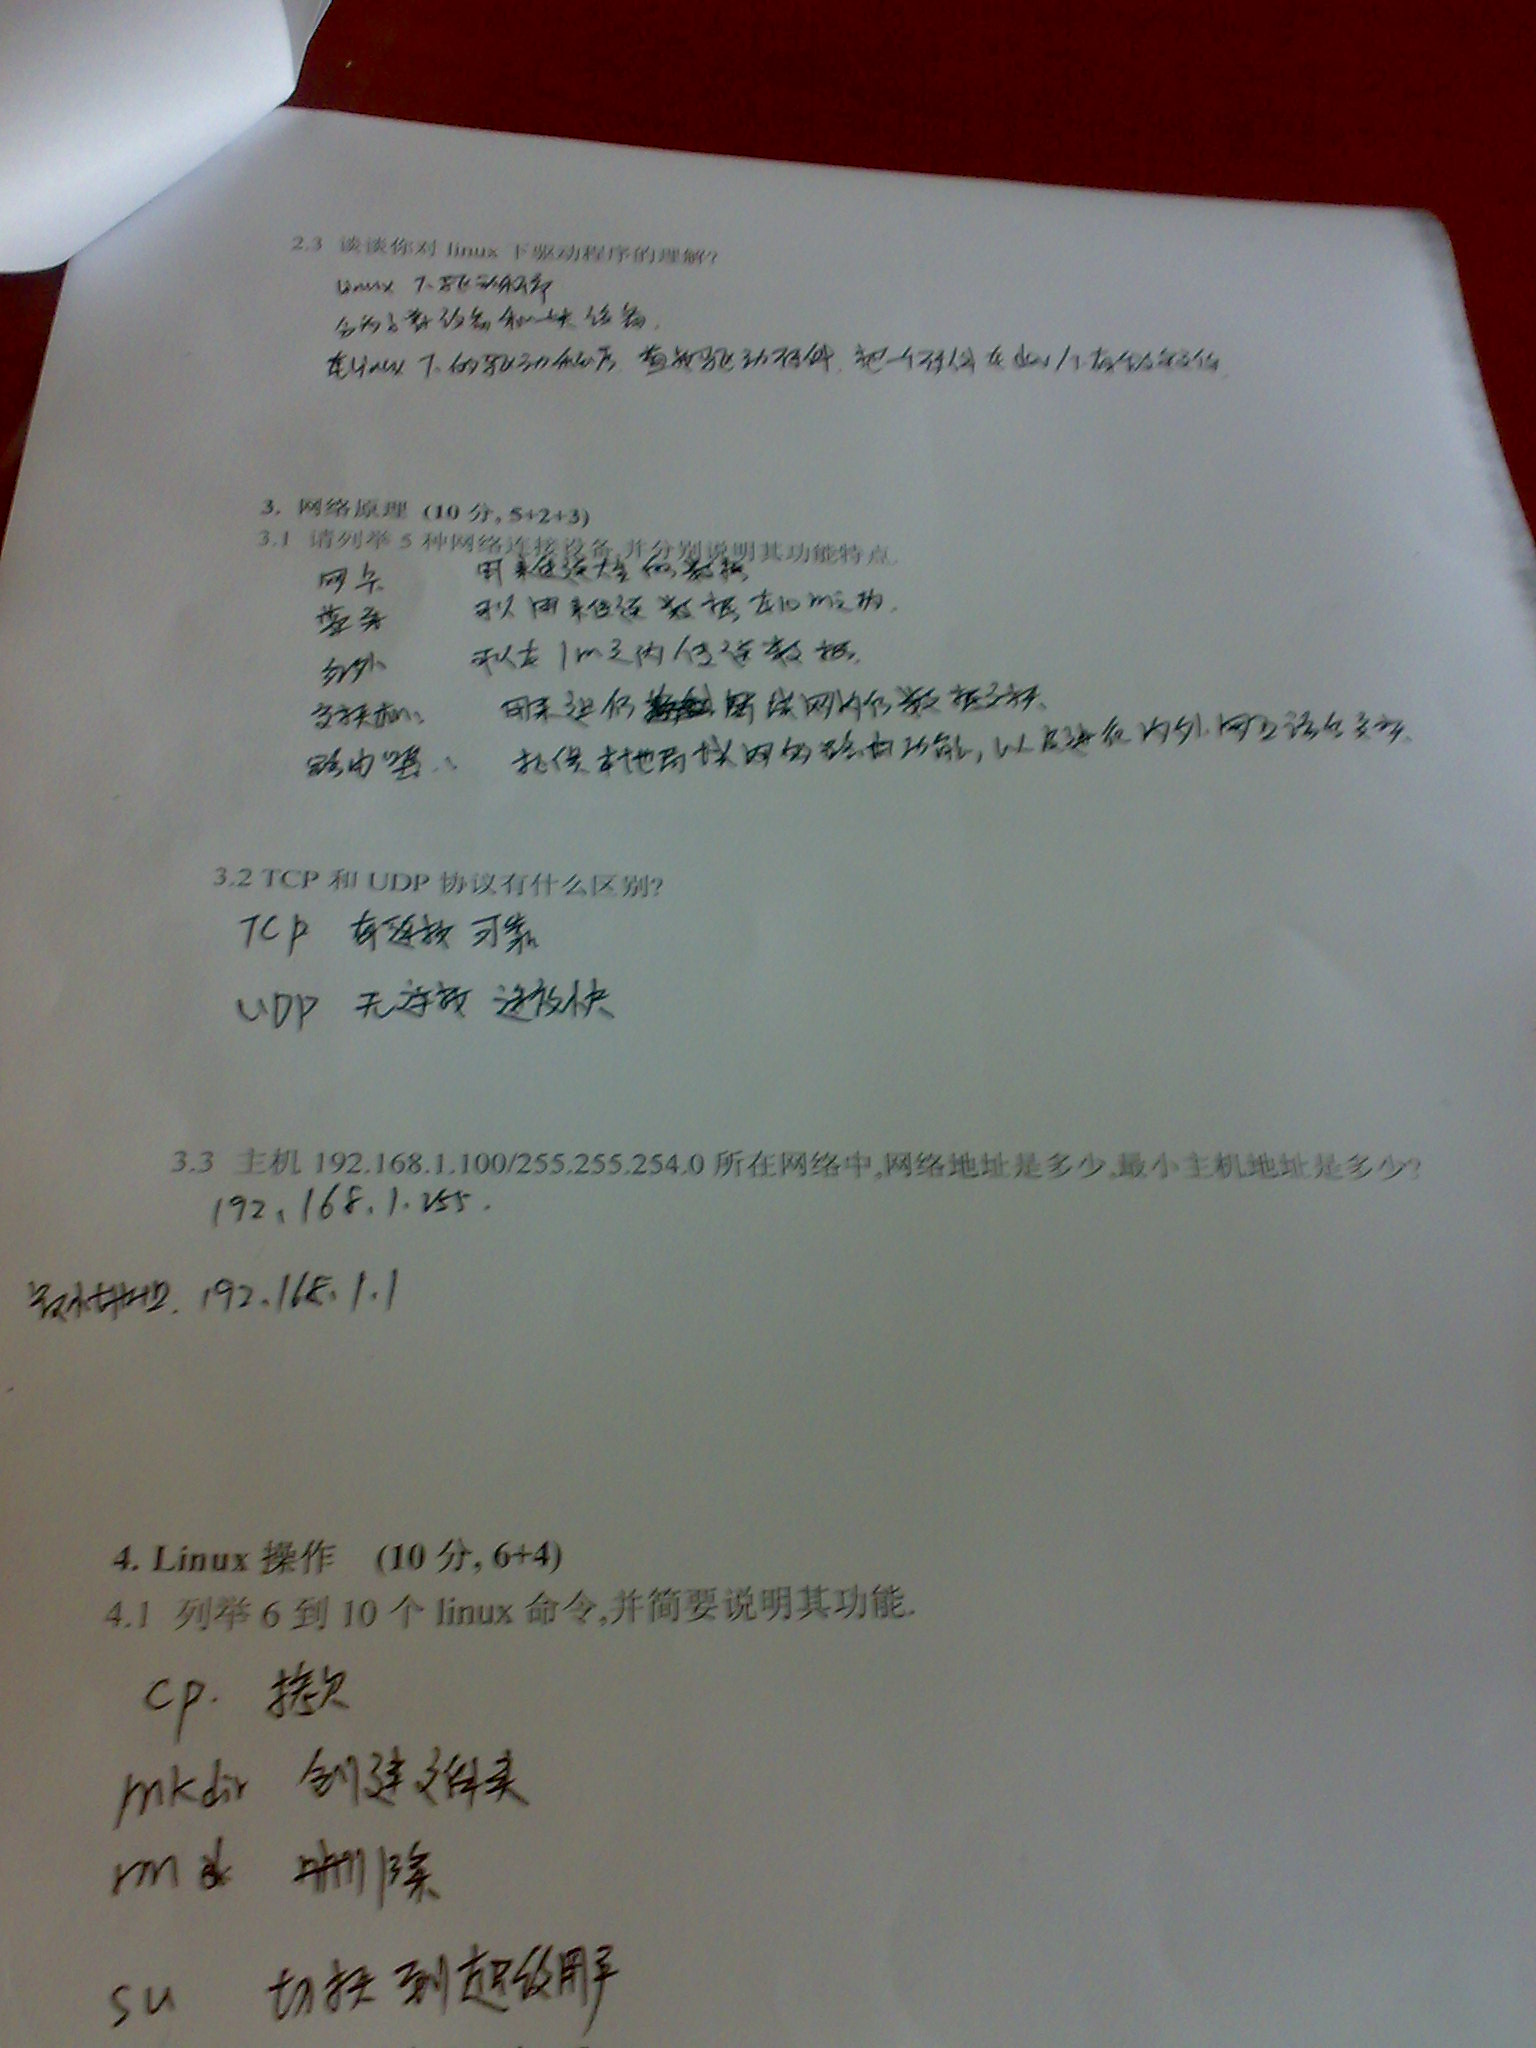 2.3 谈谈你对 linux 下驱动程序的理解?
Linux 下驱动程序
分为字符设备和块设备.
在Linux 下的驱动程序
3. 网络原理 (10 分, 5+2+3)
3.1 请列举 5 种网络连接设备,并分别说明其功能特点.
网卡 用来传送 数据
蓝牙 可以用来传送数据 在10m之内.
红外 可以在1m之内传送数据.
交换机: 用来进行 局域网内的数据交换.
路由器: 提供本地局域网的路由功能, 以及进行内外网
3.2 TCP 和 UDP 协议有什么区别?
TCP 有连接 可靠
UDP 无连接 速度快
3.3 主机 192.168.1.100/255.255.254.0 所在网络中,网络地址是多少,最小主机地址是多少?
192.168.1.255.
最小地址. 192.168.1.1
4. Linux 操作 (10 分, 6+4)
4.1 列举 6 到 10 个 linux 命令,并简要说明其功能.
cp. 拷贝
mkdir 创建文件夹
rm 删除
su 切换到超级用户